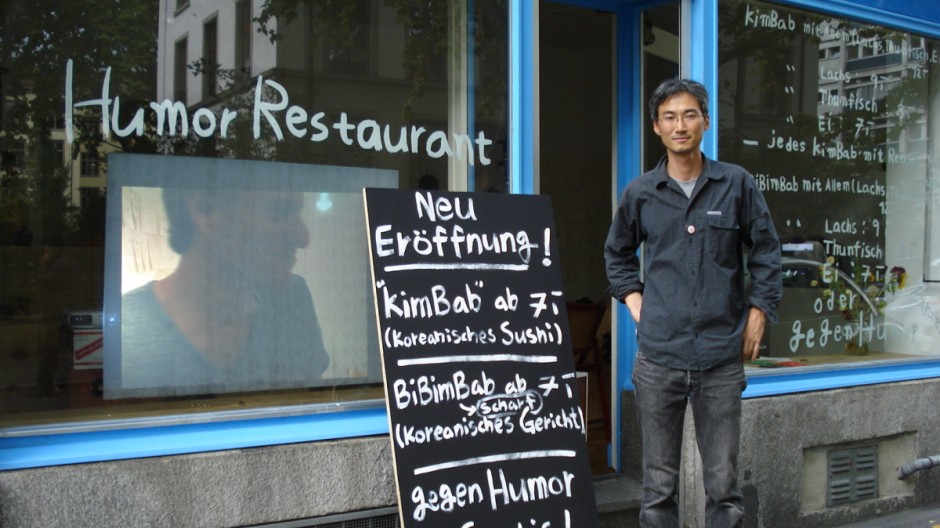 Humor Restaurant
Neu
Eröffnung!
"KimBab" ab 7.-
(Koreanisches Sushi)
BiBimBab ab 7.-
scharf
(Koreanisches Gericht)
gegen Humor
KimBab mit Allem (Lachs, Thunfisch, E
Lachs 9.-
" Thunfisch
" Ei 7.-
– jedes KimBab mit
iBimBab mit Allem (Lachs
" Lachs: 9
Thunfisch
Ei : 7.-
oder
gegen Hu